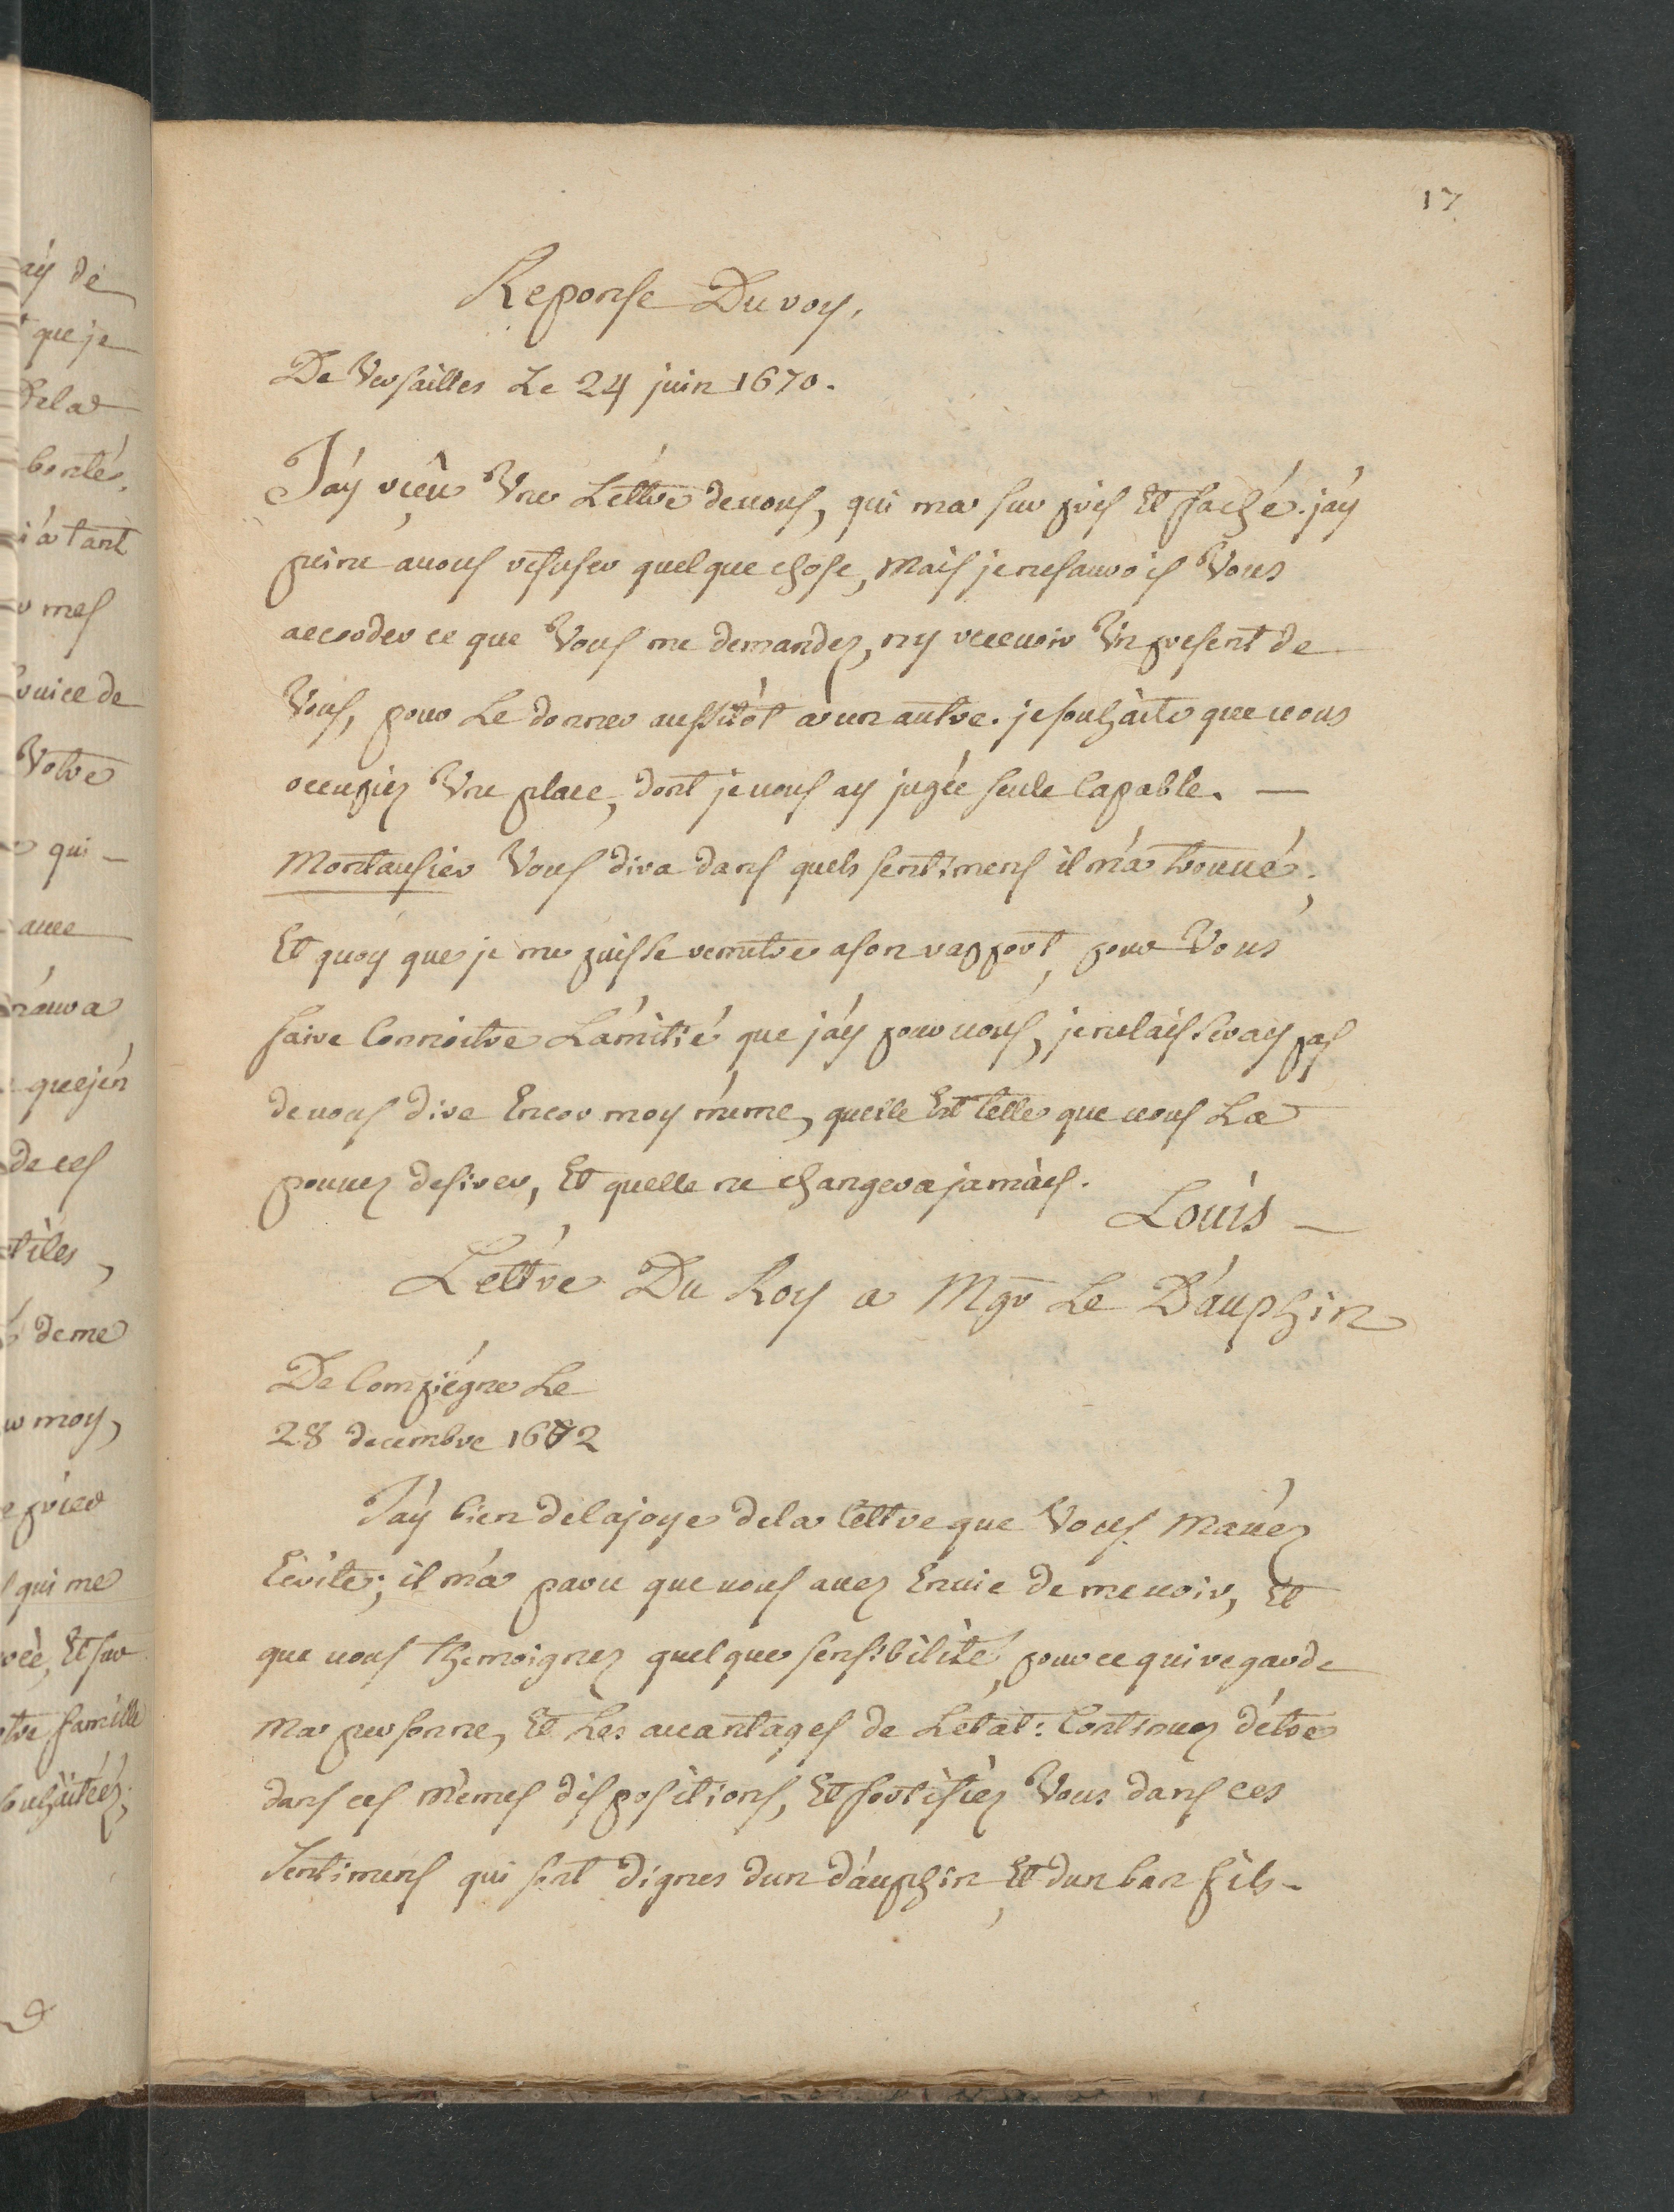 17
Reponse Du roy,
De Versailles Le 24 juin 1670.
J'áy reçû Une Léttre de uous, qui ma surpris Et faché. j'áy
peine auous refuser quelque chose, Mais je ne saurois Vous
accorder ce que Vous me demandez, ny receuoir Un present de
Vous, pour Le donner aussitôt a un autre. je souhàite que uous
occupiez Une place, dont je uous ay jugée seule Capable. —
Montausier Vous dira dans quels sentimens il m'a trouué,
Et quoy que je me puisse remettre a son rapport, pour Vous
faire Connoitre L'ámitié que j'áy pour uous, je ne laisseray pas
de uous dire Encor moy méme, quelle Est telle que uous La
pouuez desirer, Et quelle ne changera jamàis.
Louis —
Léttre Du Roy a Mgr Le D'auphin
De Compiégne Le
28 decembre 1672
J'áy bien de la joye de la lettre que Vous M'auéz
Ecrite; il m'a paru que uous auez Enuie de me uoir, Et
que uous themoignez quelque sensibilité, pour ce qui regarde
Ma personne, Et Les auantages de L'état: Continuez d'étre
dans ces mèmes dispositions, Et fortifiez Vous dans ces
Sentimens qui sont dignes dun d'áuphin, Et dun bon fils -
ay de
que je
De la
bonté,
a tant
mes
Votre
qui —
auec
que j'en
de ces
de me
moy,
prier
qui me
Et sur
famille